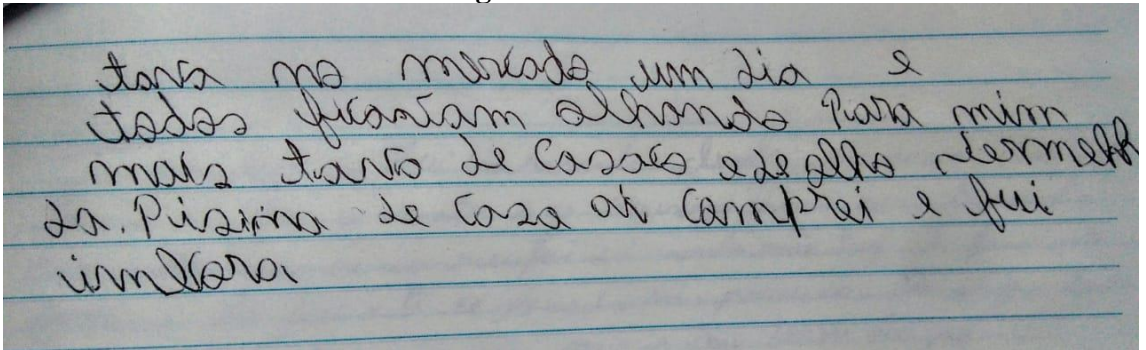 tava no mercado um dia e
todos ficaviam olhando para mim
mais tava de casaco e de olho vermelh
da. Pisima de casa ai comprei e fui
imbora